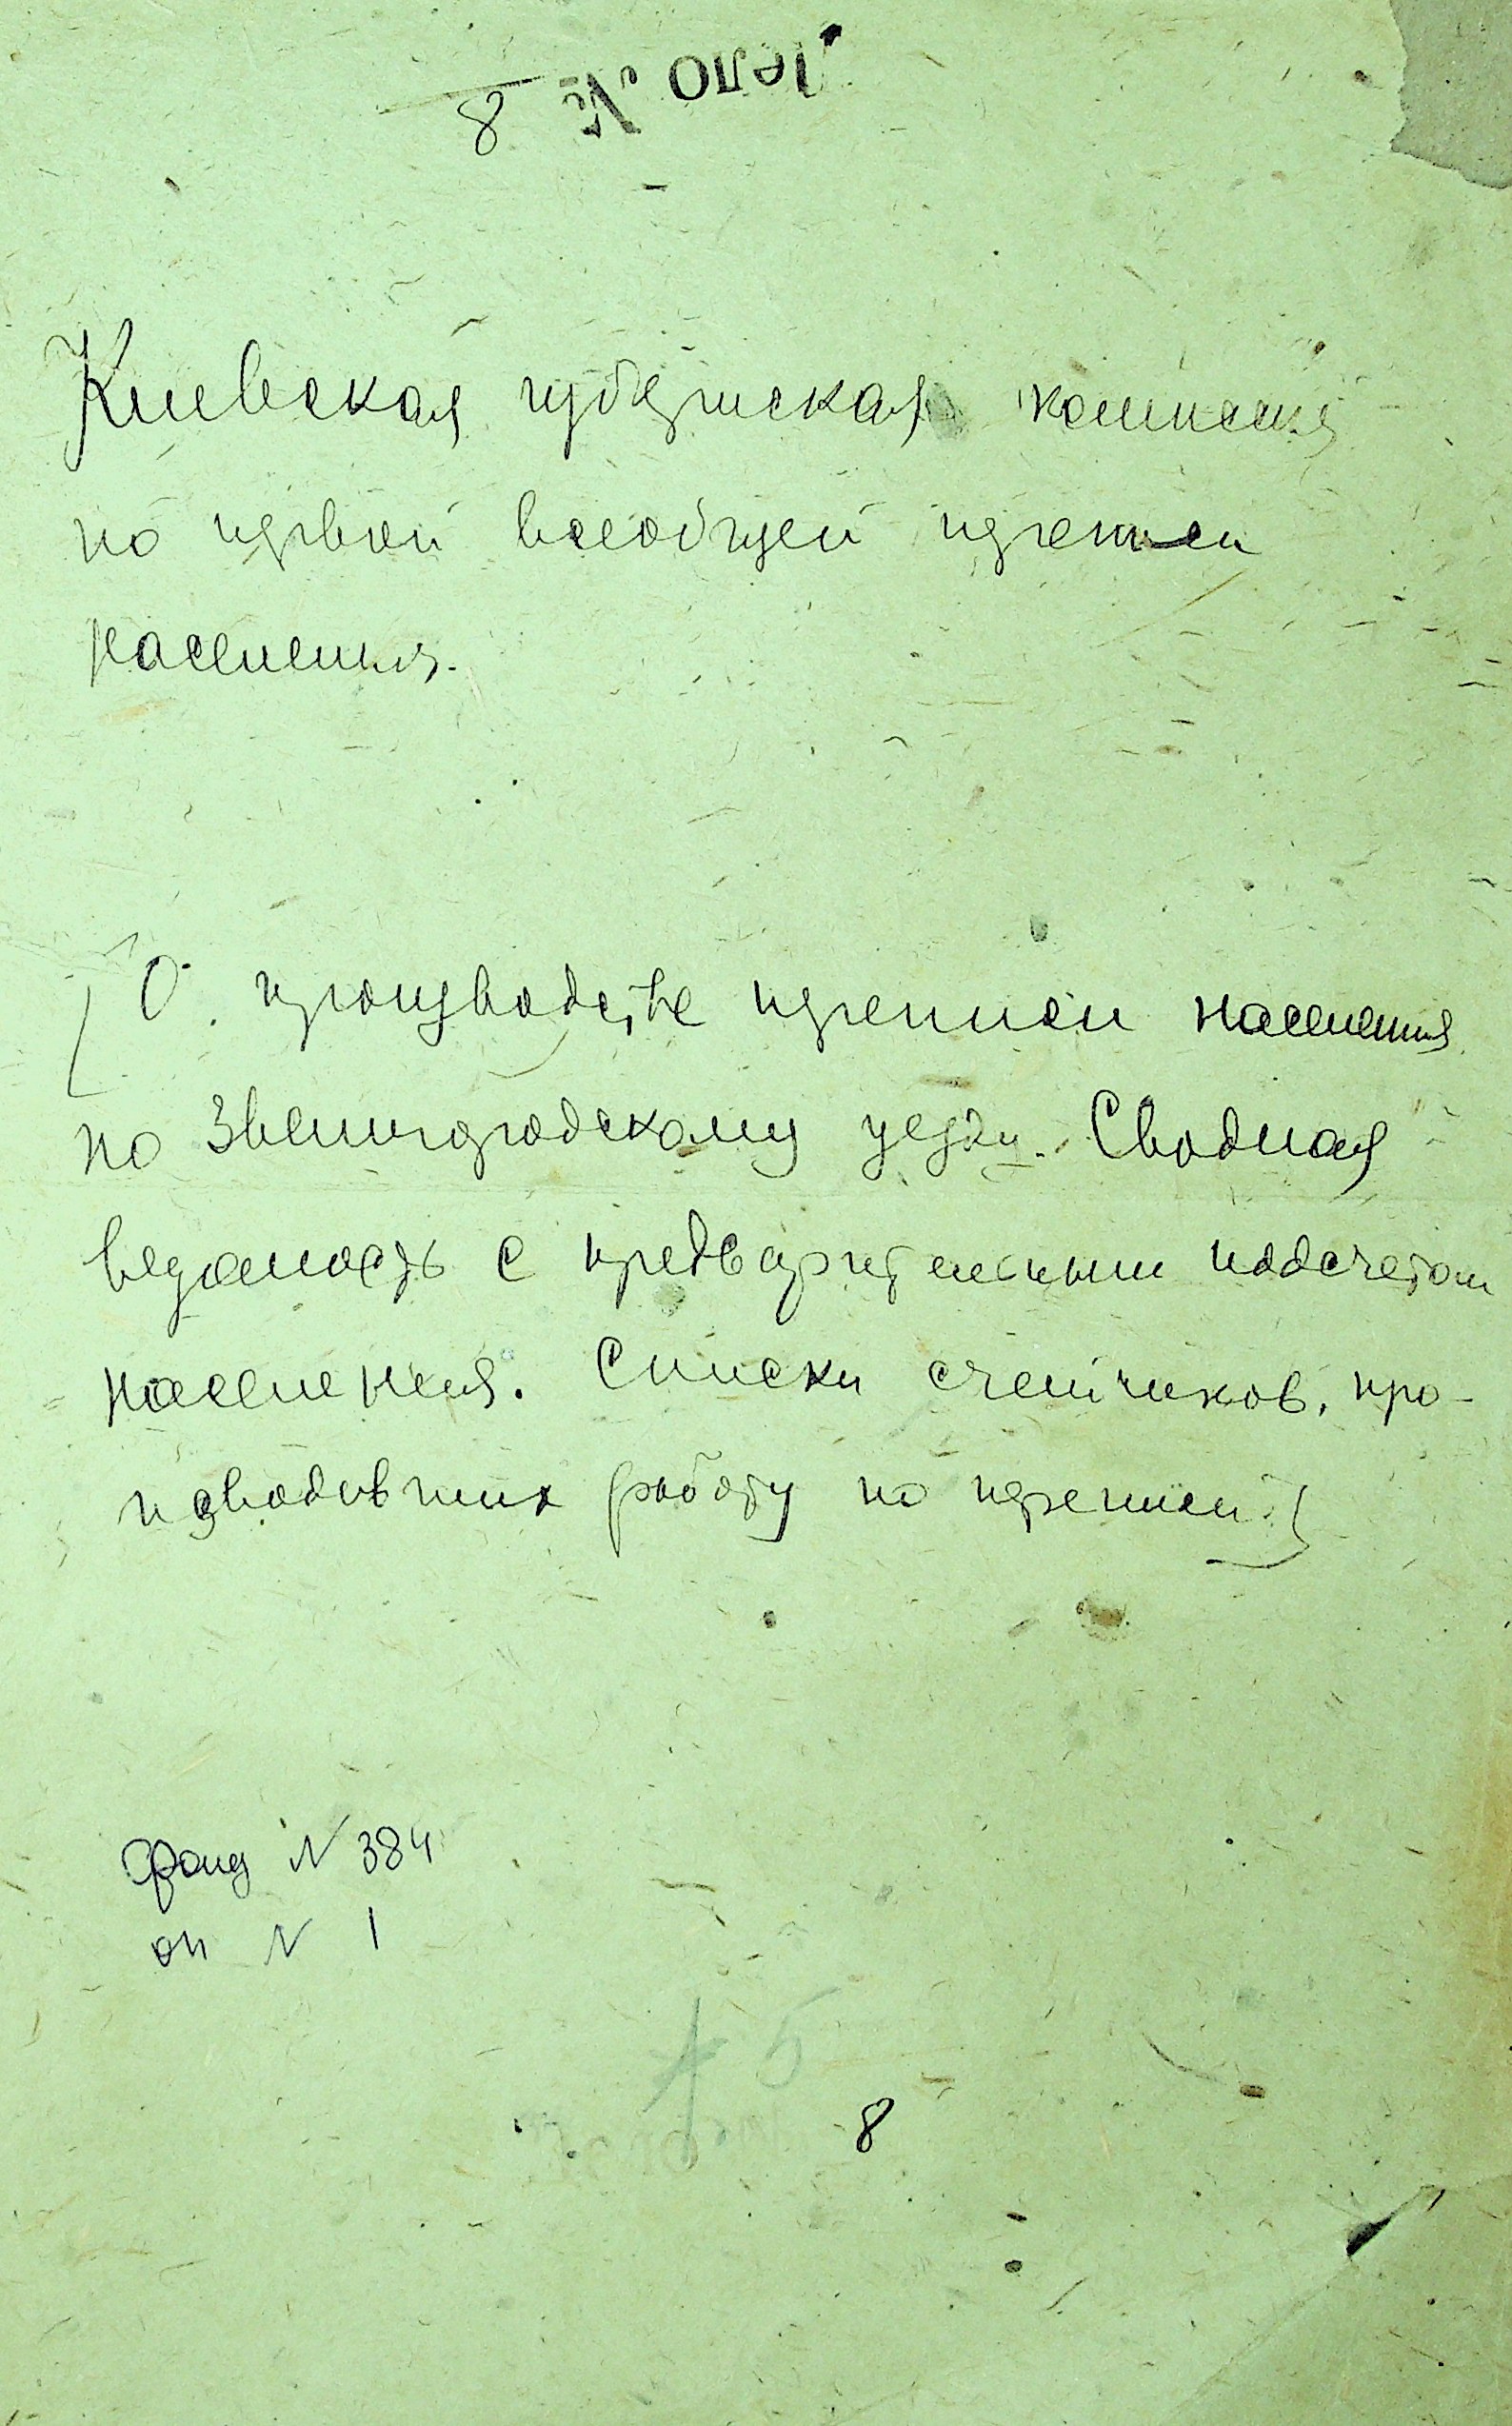 Дело № 8
Киевская губернская комиссия
по первой всеобщей переписи
населения.
О производстве переписи населения
по Звенигородскому уезду. Сводная
ведомость с предварительным подсчетом
населения. Списки счетчиков, про-
изводивших работу по переписи
Фонд N 384
оп N 1
8